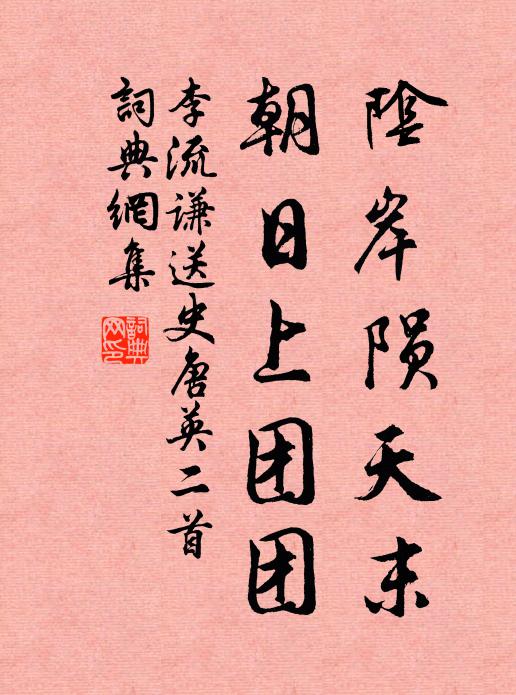 陰岸陨天末
朝日上团团
李流謙送史唐英二首
詞典網集
詞典網印